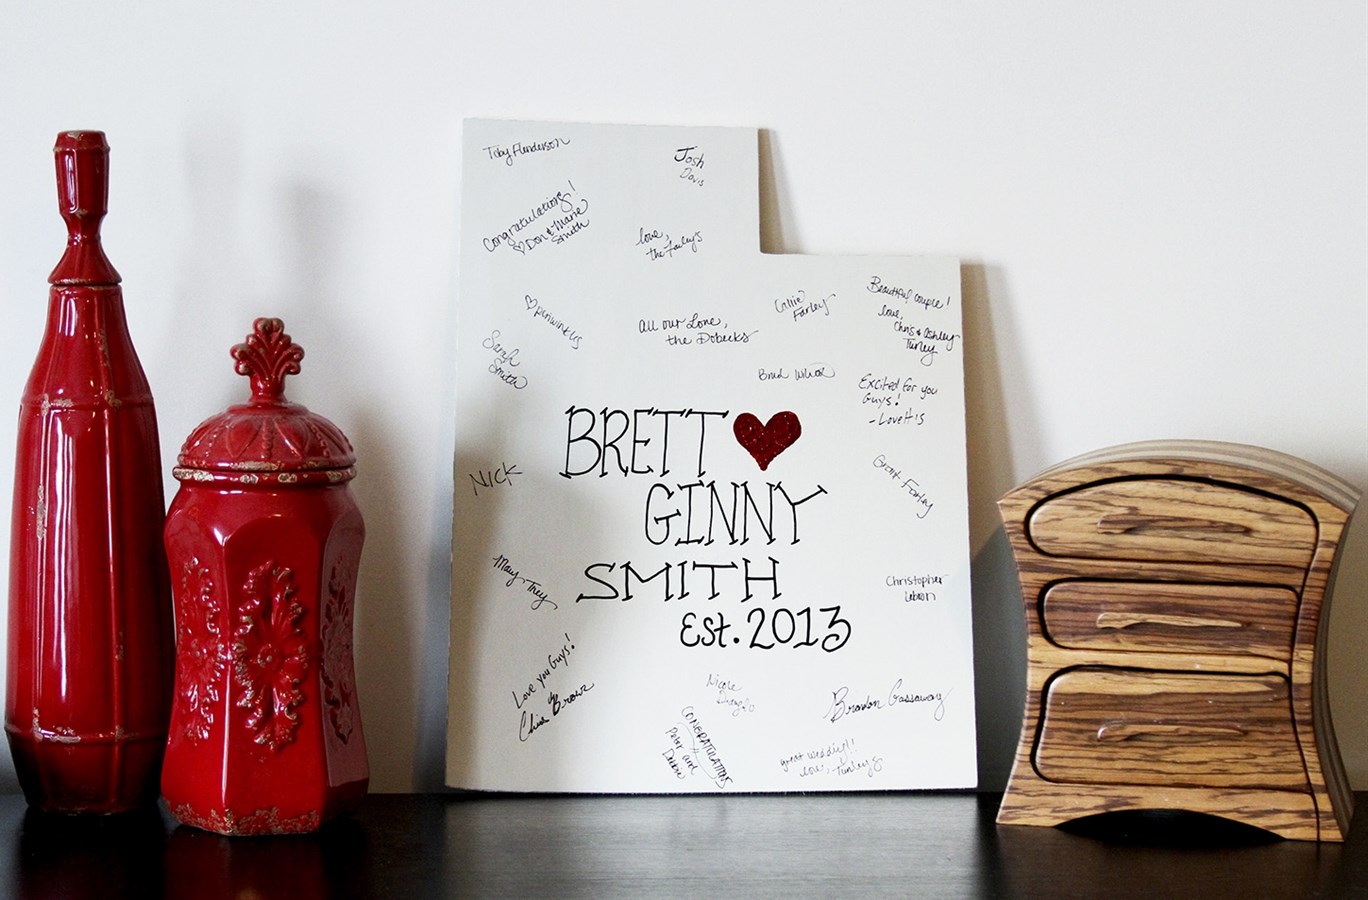 Toby Flenderson
Josh
Davis
Congratulations!
♡ Don & Marie
Smith
love,
the Farley's
Callie
Farley
Beautiful couple!
love,
Chris & Ashley
Turley
all our Love,
the Dobecks
Sarah
Smith
Brad Wilcox
Excited for you
Guys!
BRETT ♥
GINNY
SMITH
Est. 2013
NICK
Grant Farley
Christopher
Love you Guys!
Brown
Nicole
Brandon Gassaway
CONGRATULATIONS
Peter and
Debbie
great wedding!!
love,